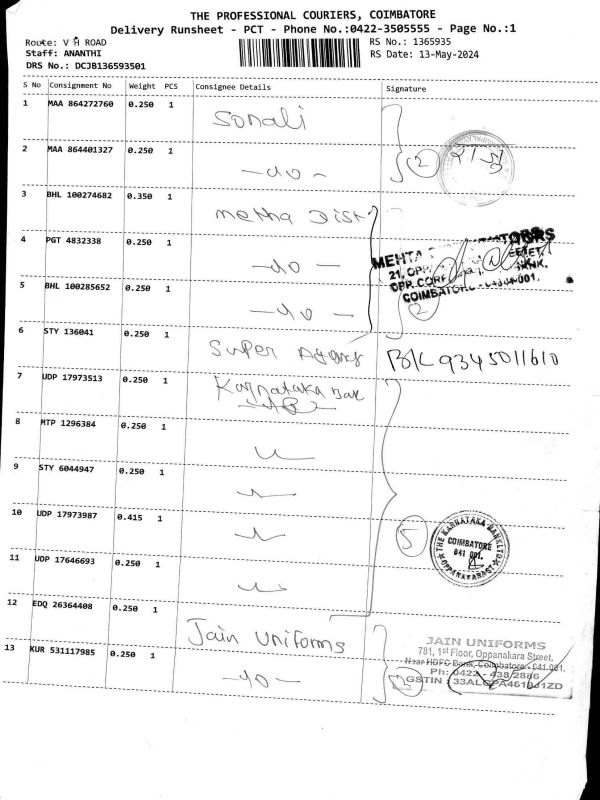 THE PROFESSIONAL COURIERS, COIMBATORE
Delivery Runsheet - PCT - Phone No.:0422-3505555 - Page No.:1
Route: V H ROAD
RS No.: 1365935
Staff: ANANTHI
RS Date: 13-May-2024
DRS No.: DCJB136593501
S No Consignment No Weight PCS Consignee Details Signature
1 MAA 864272760 0.250 1 Sonali
2 MAA 864401327 0.250 1 -do- 2
3 BHL 100274682 0.350 1 metha Dist
4 PGT 4832338 0.250 1 -do-
MEHTA
21, OPP.
OPP. CORP BANK,
COIMBATORE - 641 001.
5 BHL 100285652 0.250 1 -do- 2
6 STY 136041 0.250 1 Super Agency 9345011610
7 UDP 17973513 0.250 1 Karnataka Bak
8 MTP 1296384 0.250 1
9 STY 6044947 0.250 1
10 UDP 17973987 0.415 1 5
THE KARNATAKA BANK LTD
COIMBATORE
641 001.
11 UDP 17646693 0.250 1
12 EDQ 26364408 0.250 1 Jain Uniforms
13 KUR 531117985 0.250 1 -do- 2
JAIN UNIFORMS
781, 1st Floor, Oppanakara Street,
Near HDFC Bank, Coimbatore - 641 001.
Ph: 0422 - 438 2886
GSTIN :